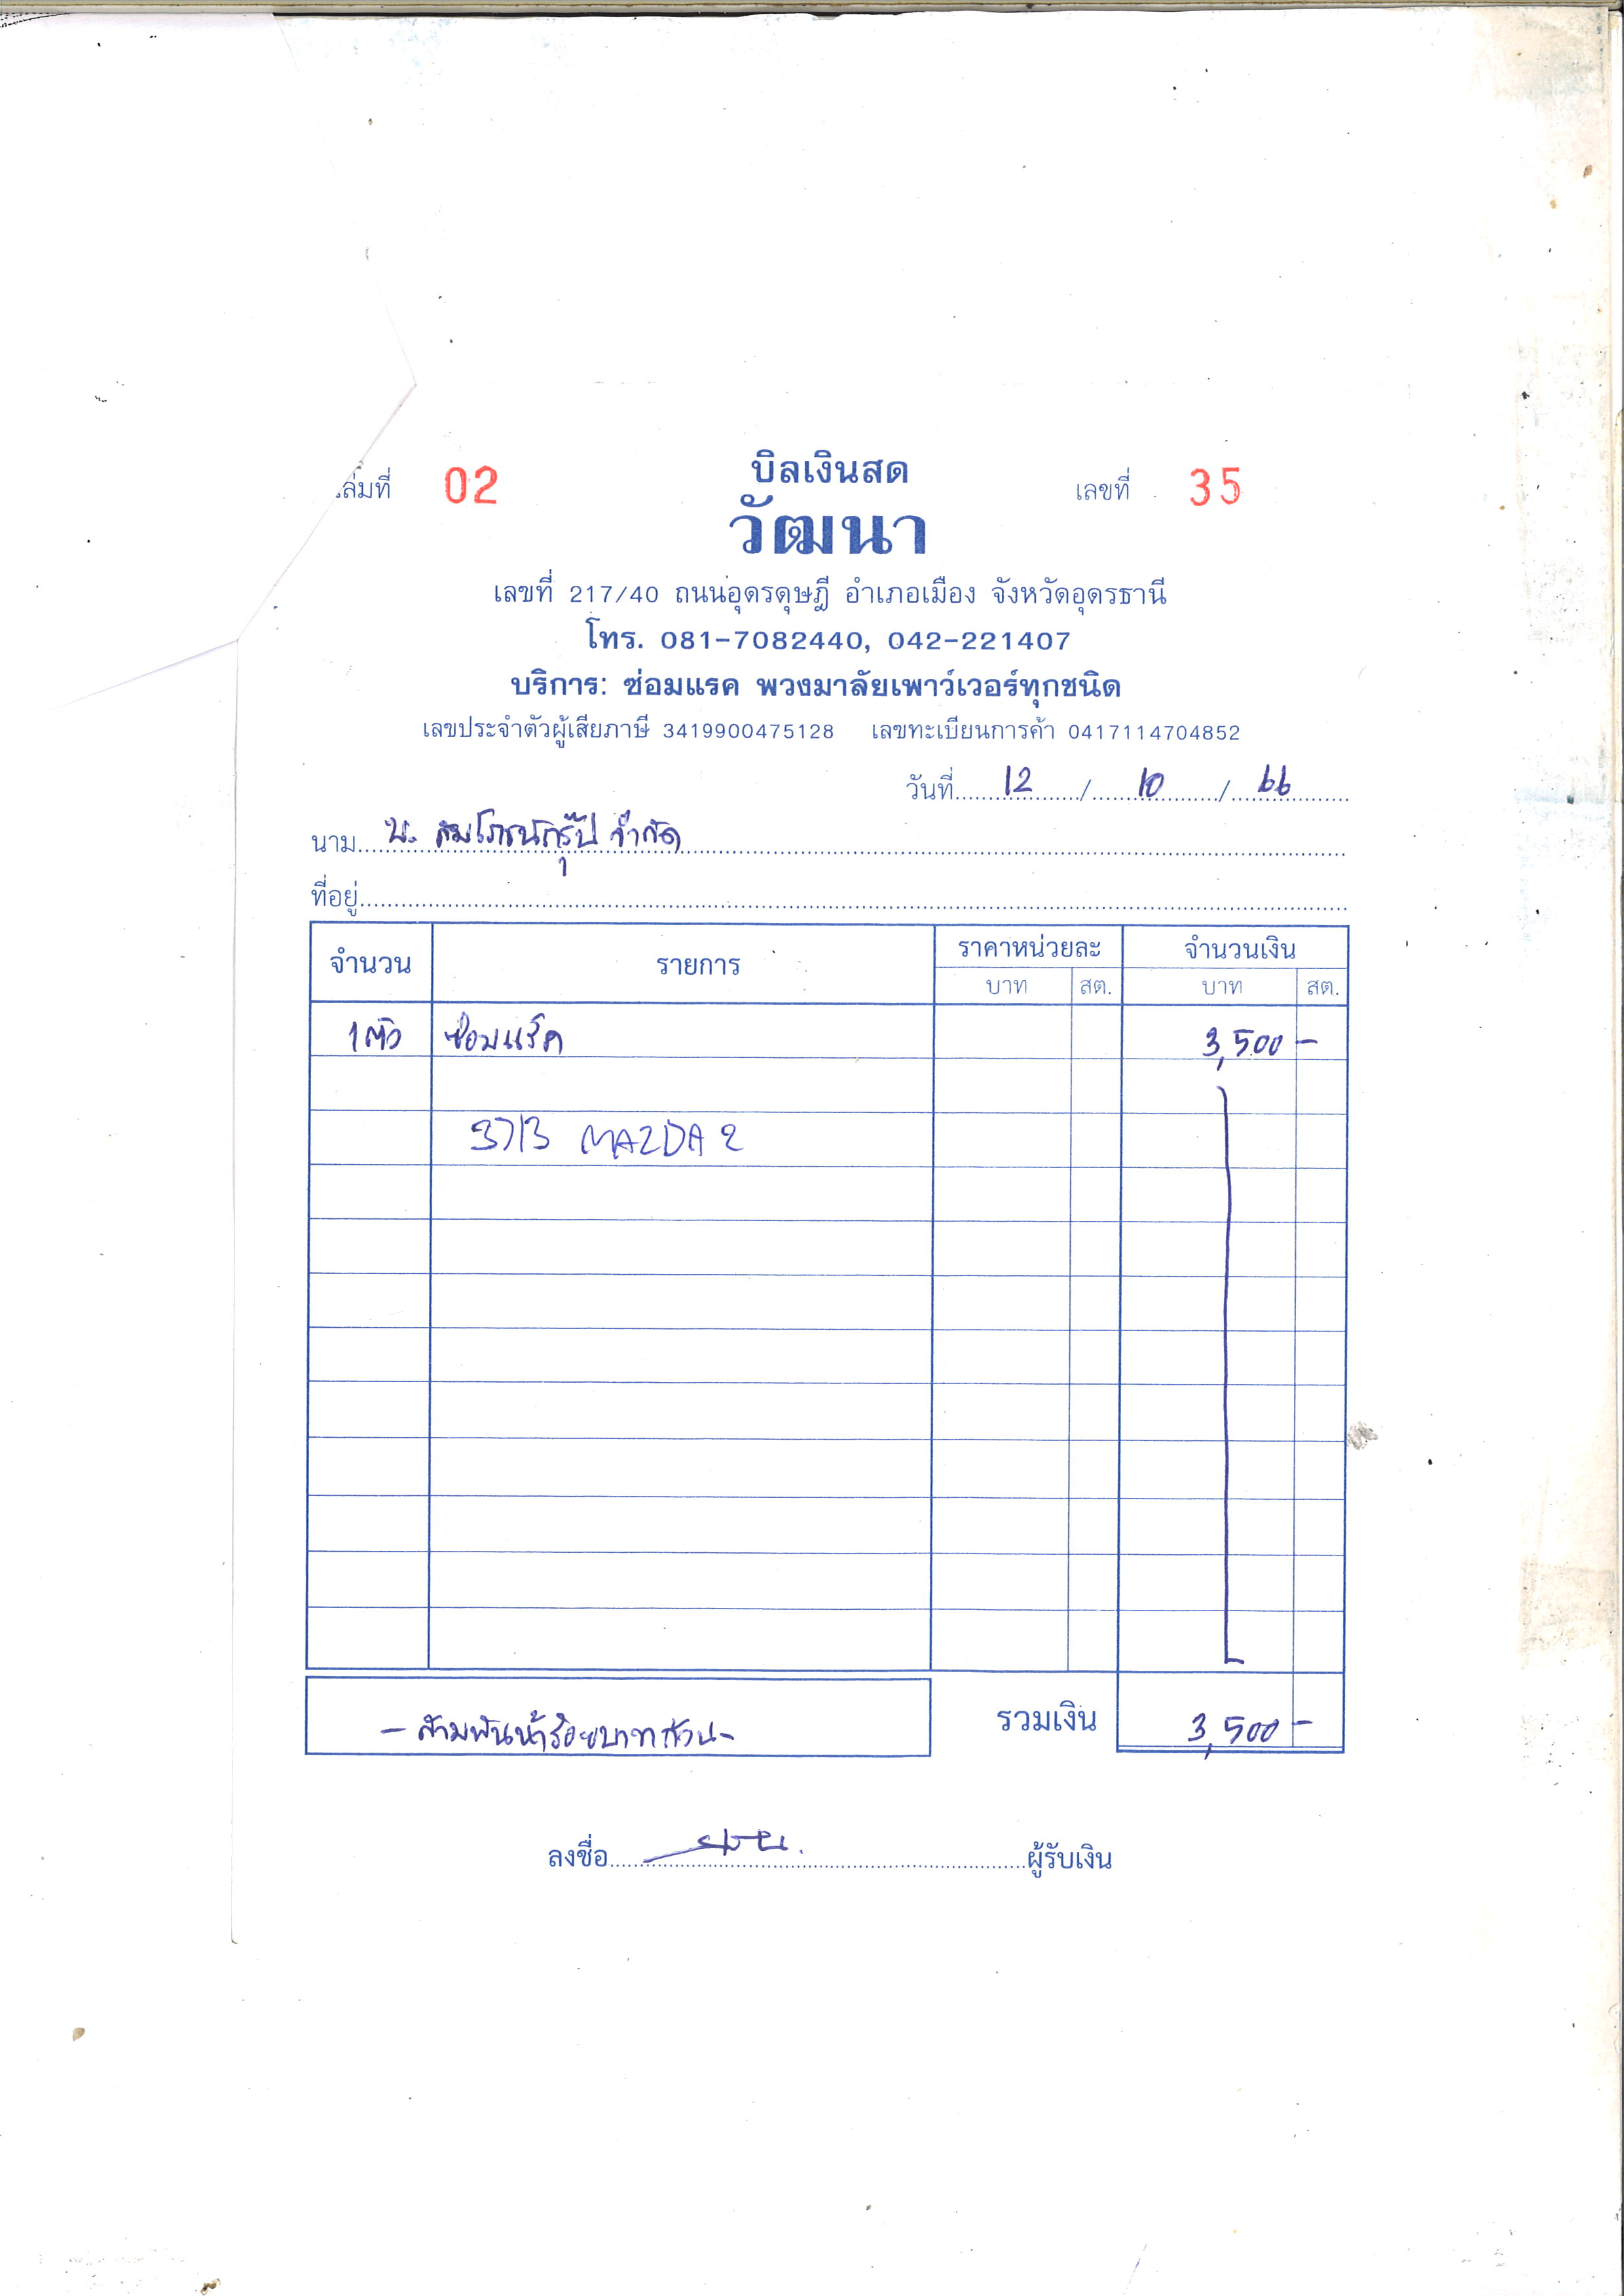 เล่มที่ 02 บิลเงินสด เลขที่ 35
วัฒนา
เลขที่ 217/40 ถนนอุดรดุษฎี อำเภอเมือง จังหวัดอุดรธานี
โทร. 081-7082440, 042-221407
บริการ: ซ่อมแรค พวงมาลัยเพาว์เวอร์ทุกชนิด
เลขประจำตัวผู้เสียภาษี 3419900475128 เลขทะเบียนการค้า 0417114704852
วันที่ 12 / 10 / 66
นาม บ. สมโภชน์กรุ๊ป จำกัด
ที่อยู่
จำนวน รายการ ราคาหน่วยละ จำนวนเงิน
บาท สต. บาท สต.
1 ตัว ซ่อมแร็ค 3,500 -
3713 MAZDA 2
- สามพันห้าร้อยบาทถ้วน - รวมเงิน 3,500 -
ลงชื่อ ผู้รับเงิน